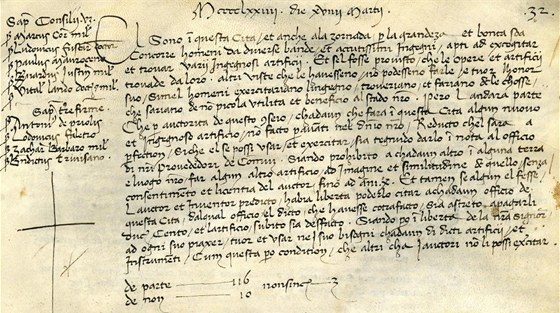 Mcccclxxiiii. die xviiii Martii.
32
Sap. Consilij vz.
s. Marcus Cor. mil.
s. Ludovicus
s. Paulus Mauroceno
s. Bnardus Justin. mil.
s. Vital. lando doct. mil.
Sap. ter. firme.
s. Antoni. de priolis
s. Ludovicus faletro
s. Zachar. Barbaro mil.
s. Trivisano.
El Sono i questa Cita, et anche ala zornada p la grandeza et bonta soa
Concorre homeni da diverse bande, et acutissimi Ingegni, apti ad excogitar
et trovar varij Ingegnosi artificij. Et sel fosse provisto, che le opere et artificij
trovade da loro, altri viste che le havesseno, nō podesseno farle, e tuor l honor
suo, simel homeni exercitariano l ingegno, troveriano, et fariano de le chosse
che sariano de nō picola utilita et beneficio al stado nro. Pero l andara parte
Che p auctorita de questo 9seio, chadaun che fara i questa Cita algun nuovo
et Ingegnoso artificio, nō facto p avanti nel dnio nro, Reducto chel sara a
pfection, Siche el se possi usar, et exercitar, sia tegnudo darlo i nota al officio
di nri Provededori de Comun. Siando prohibito a chadaun altro i alguna terra
e luogo nro, far algun altro artificio, ad Imagine et similitudine de quello, senza
consentimento et licentia del auctor, fino ad ani .x. Et tamen se algun el fesse,
L auctor et Inventor predicto, habia liberta poderlo citar a chadaun officio de
questa Cita, dalqual officio el dicto, che havesse cotrafacto, sia astreto a pagarli
duc. Cento, et l artificio, subito sia desfacto. Siando po i liberta de la nra Signor.
ad ogni suo piaxer, tuor et usar ne i suo bisogni chadaun di dicti artificij, et
Instrumenti, Cum questa po condition, che altri cha i auctori nō li possi excitar.
de parte 116
de non 10
nonsinc. 3